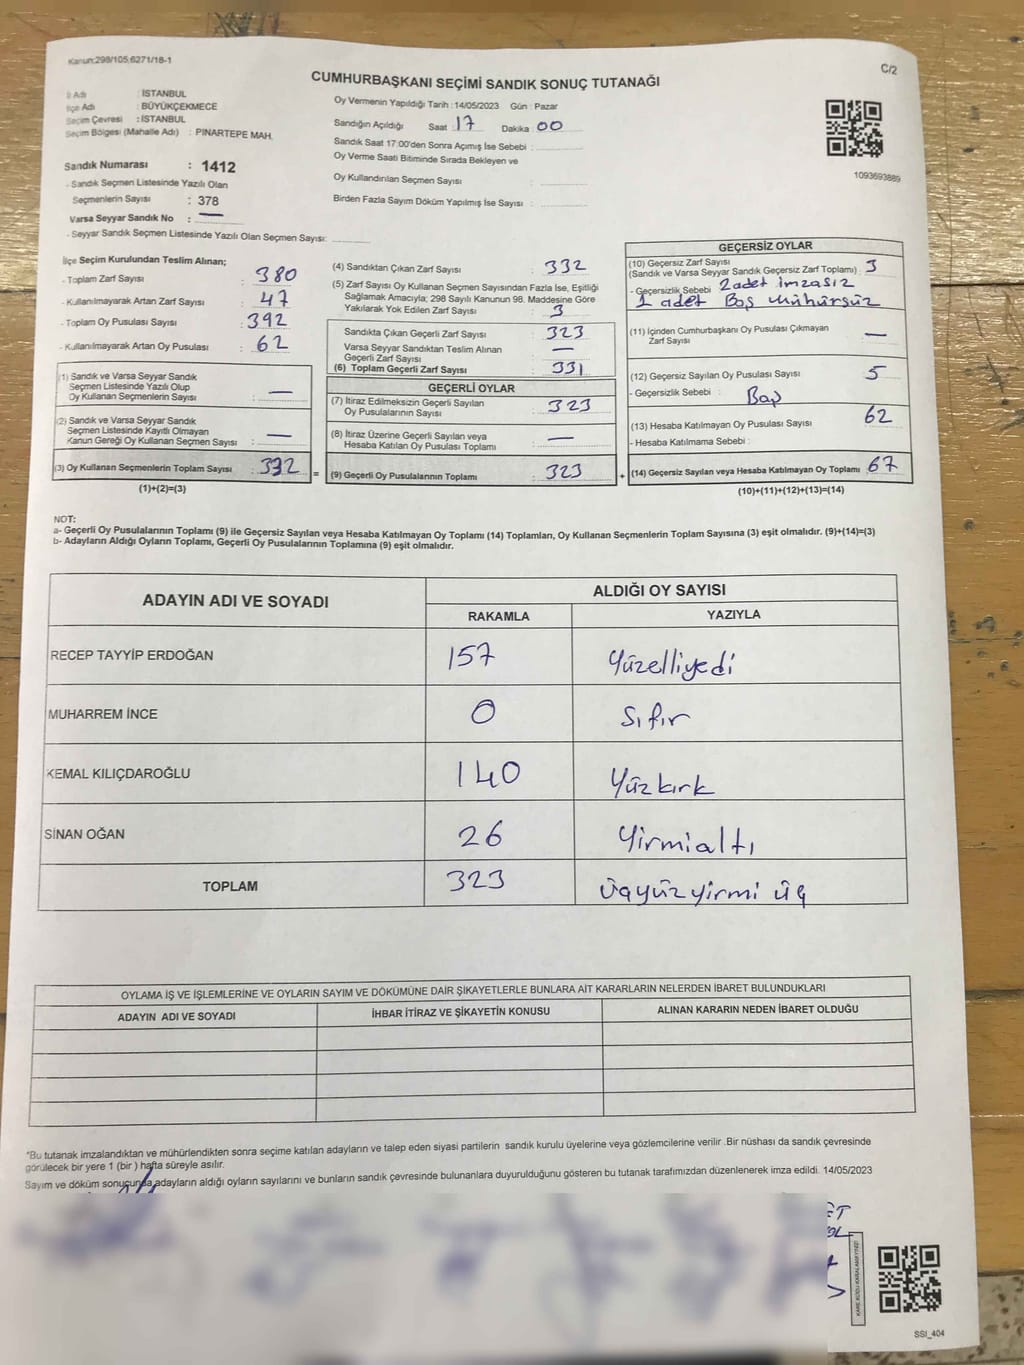 Kanun:298/105,6271/18-1
C/2
CUMHURBAŞKANI SEÇİMİ SANDIK SONUÇ TUTANAĞI
İl Adı : İSTANBUL
İlçe Adı : BÜYÜKÇEKMECE
Seçim Çevresi : İSTANBUL
Seçim Bölgesi (Mahalle Adı) : PINARTEPE MAH.
Sandık Numarası : 1412
- Sandık Seçmen Listesinde Yazılı Olan
Seçmenlerin Sayısı : 378
Varsa Seyyar Sandık No : —
- Seyyar Sandık Seçmen Listesinde Yazılı Olan Seçmen Sayısı:
Oy Vermenin Yapıldığı Tarih : 14/05/2023 Gün : Pazar
Sandığın Açıldığı Saat : 17 Dakika : 00
Sandık Saat 17:00'den Sonra Açımış İse Sebebi :
Oy Verme Saati Bitiminde Sırada Bekleyen ve
Oy Kullandırılan Seçmen Sayısı :
Birden Fazla Sayım Döküm Yapılmış İse Sayısı :
1093693889
İlçe Seçim Kurulundan Teslim Alınan;
- Toplam Zarf Sayısı : 380
- Kullanılmayarak Artan Zarf Sayısı : 47
- Toplam Oy Pusulası Sayısı : 392
- Kullanılmayarak Artan Oy Pusulası : 62
(1) Sandık ve Varsa Seyyar Sandık
Seçmen Listesinde Yazılı Olup
Oy Kullanan Seçmenlerin Sayısı : —
(2) Sandık ve Varsa Seyyar Sandık
Seçmen Listesinde Kayıtlı Olmayan
Kanun Gereği Oy Kullanan Seçmen Sayısı : —
(3) Oy Kullanan Seçmenlerin Toplam Sayısı : 332 =
(1)+(2)=(3)
(4) Sandıktan Çıkan Zarf Sayısı : 332
(5) Zarf Sayısı Oy Kullanan Seçmen Sayısından Fazla İse, Eşitliği
Sağlamak Amacıyla; 298 Sayılı Kanunun 98. Maddesine Göre
Yakılarak Yok Edilen Zarf Sayısı : 3
Sandıkta Çıkan Geçerli Zarf Sayısı : 323
Varsa Seyyar Sandıktan Teslim Alınan
Geçerli Zarf Sayısı : —
(6) Toplam Geçerli Zarf Sayısı : 331
GEÇERLİ OYLAR
(7) İtiraz Edilmeksizin Geçerli Sayılan
Oy Pusulalarının Sayısı : 323
(8) İtiraz Üzerine Geçerli Sayılan veya
Hesaba Katılan Oy Pusulası Toplamı : —
(9) Geçerli Oy Pusulalarının Toplamı : 323 +
GEÇERSİZ OYLAR
(10) Geçersiz Zarf Sayısı
(Sandık ve Varsa Seyyar Sandık Geçersiz Zarf Toplamı) : 3
- Geçersizlik Sebebi : 2 adet imzasız
1 adet Boş mühürsüz
(11) İçinden Cumhurbaşkanı Oy Pusulası Çıkmayan
Zarf Sayısı : —
(12) Geçersiz Sayılan Oy Pusulası Sayısı : 5
- Geçersizlik Sebebi :
(13) Hesaba Katılmayan Oy Pusulası Sayısı : 62
- Hesaba Katılmama Sebebi :
(14) Geçersiz Sayılan veya Hesaba Katılmayan Oy Toplamı : 67
(10)+(11)+(12)+(13)=(14)
NOT:
a- Geçerli Oy Pusulalarının Toplamı (9) ile Geçersiz Sayılan veya Hesaba Katılmayan Oy Toplamı (14) Toplamları, Oy Kullanan Seçmenlerin Toplam Sayısına (3) eşit olmalıdır. (9)+(14)=(3)
b- Adayların Aldığı Oyların Toplamı, Geçerli Oy Pusulalarının Toplamına (9) eşit olmalıdır.
ADAYIN ADI VE SOYADI ALDIĞI OY SAYISI
RAKAMLA YAZIYLA
RECEP TAYYİP ERDOĞAN 157 Yüzelliyedi
MUHARREM İNCE 0 Sıfır
KEMAL KILIÇDAROĞLU 140 Yüzkırk
SİNAN OĞAN 26 Yirmialtı
TOPLAM 323 Üçyüzyirmi üç
OYLAMA İŞ VE İŞLEMLERİNE VE OYLARIN SAYIM VE DÖKÜMÜNE DAİR ŞİKAYETLERLE BUNLARA AİT KARARLARIN NELERDEN İBARET BULUNDUKLARI
ADAYIN ADI VE SOYADI İHBAR İTİRAZ VE ŞİKAYETİN KONUSU ALINAN KARARIN NEDEN İBARET OLDUĞU
*Bu tutanak imzalandıktan ve mühürlendikten sonra seçime katılan adayların ve talep eden siyasi partilerin sandık kurulu üyelerine veya gözlemcilerine verilir .Bir nüshası da sandık çevresinde
görülecek bir yere 1 (bir ) hafta süreyle asılır.
Sayım ve döküm sonucunda adayların aldığı oyların sayılarını ve bunların sandık çevresinde bulunanlara duyurulduğunu gösteren bu tutanak tarafımızdan düzenlenerek imza edildi. 14/05/2023
SSI_404